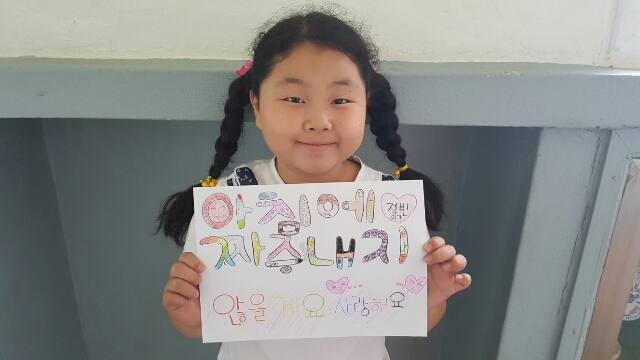 아침에
짜증내지
않을게요 사랑해요